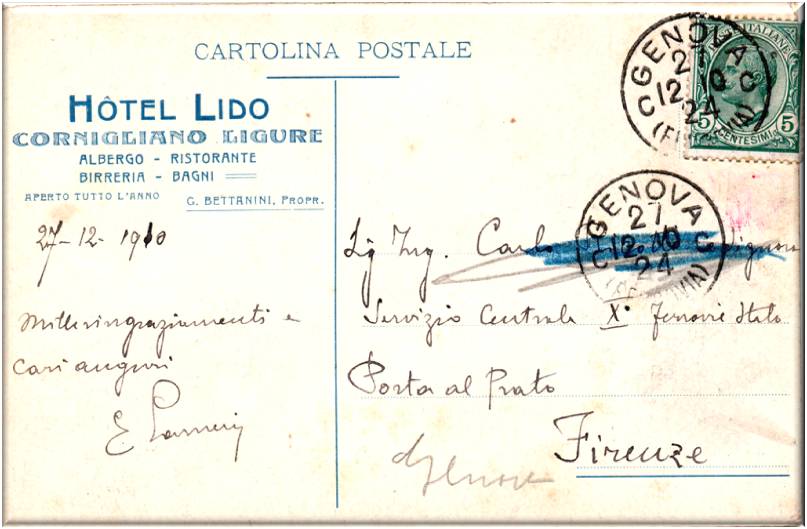 CARTOLINA POSTALE
HÔTEL LIDO
CORNIGLIANO LIGURE
ALBERGO - RISTORANTE
BIRRERIA - BAGNI
APERTO TUTTO L'ANNO
G. BETTANINI, PROPR.
27-12-1910
Mille ringraziamenti e
cari auguri
E
POSTE ITALIANE
5 5
CENTESIMI
GENOVA
27
12 10
24
(FERROVIA)
GENOVA
27
12 10
24
(FERROVIA)
Sig Ing. Carlo
Servizio Centrale X° Ferrovie Stato
Porta al Prato
Firenze
Genova